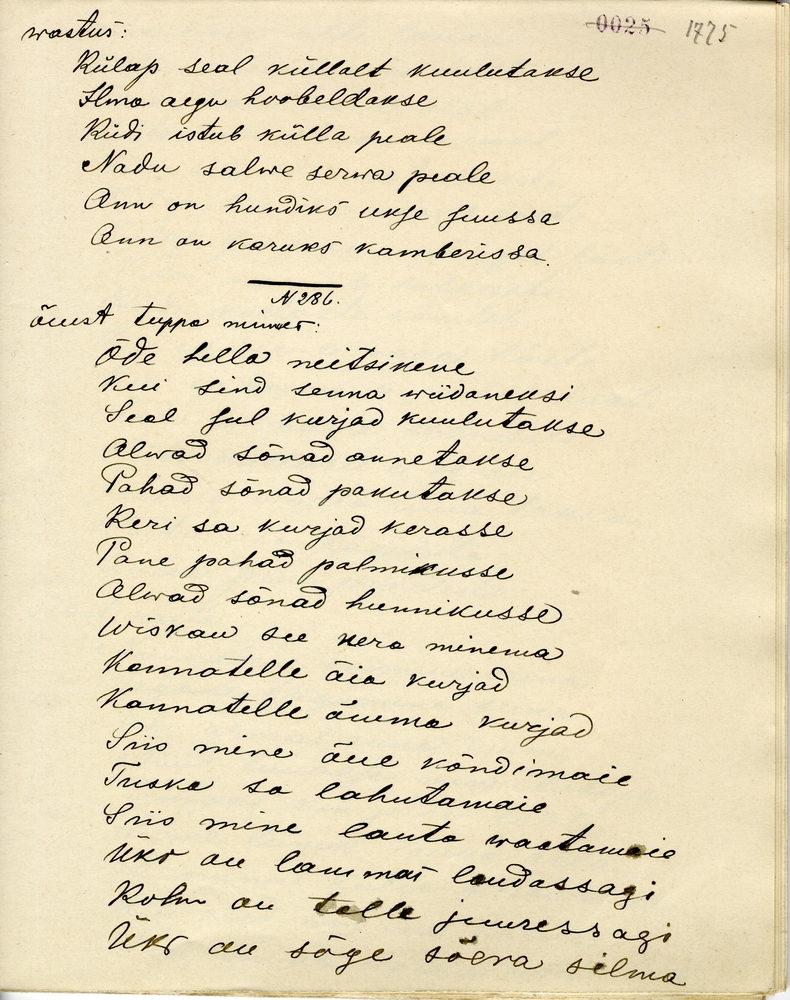 wastus:
0025 1775
Külap seal küllalt kuulutakse
Ilma aegu hoobeldakse
Küdi istub külla peale
Nadu salwe serwa peale
Ann on hundiks ukse suussa
Ann on karuks kamberissa.
N 286.
õuest tuppa minnes:
Õde hella neitsikene
Kui sind senna wiidaneksi
Seal sul kurjad kuulutakse
Alwad sõnad annetakse
Pahad sõnad pakutakse
Keri sa kurjad kerasse
Pane pahad palmikusse
Alwad sõnad hunnikusse
Wiskan see kera minema
Kannatelle äia kurjad
Kannatelle ämma kurjad
Siis mine õue kõndimaie
Tuska sa lahutamaie
Siis mine lauta waatamaie
Üks on lammas laudassagi
Kolm on talle juuressagi
Üks on sõge sõera silma